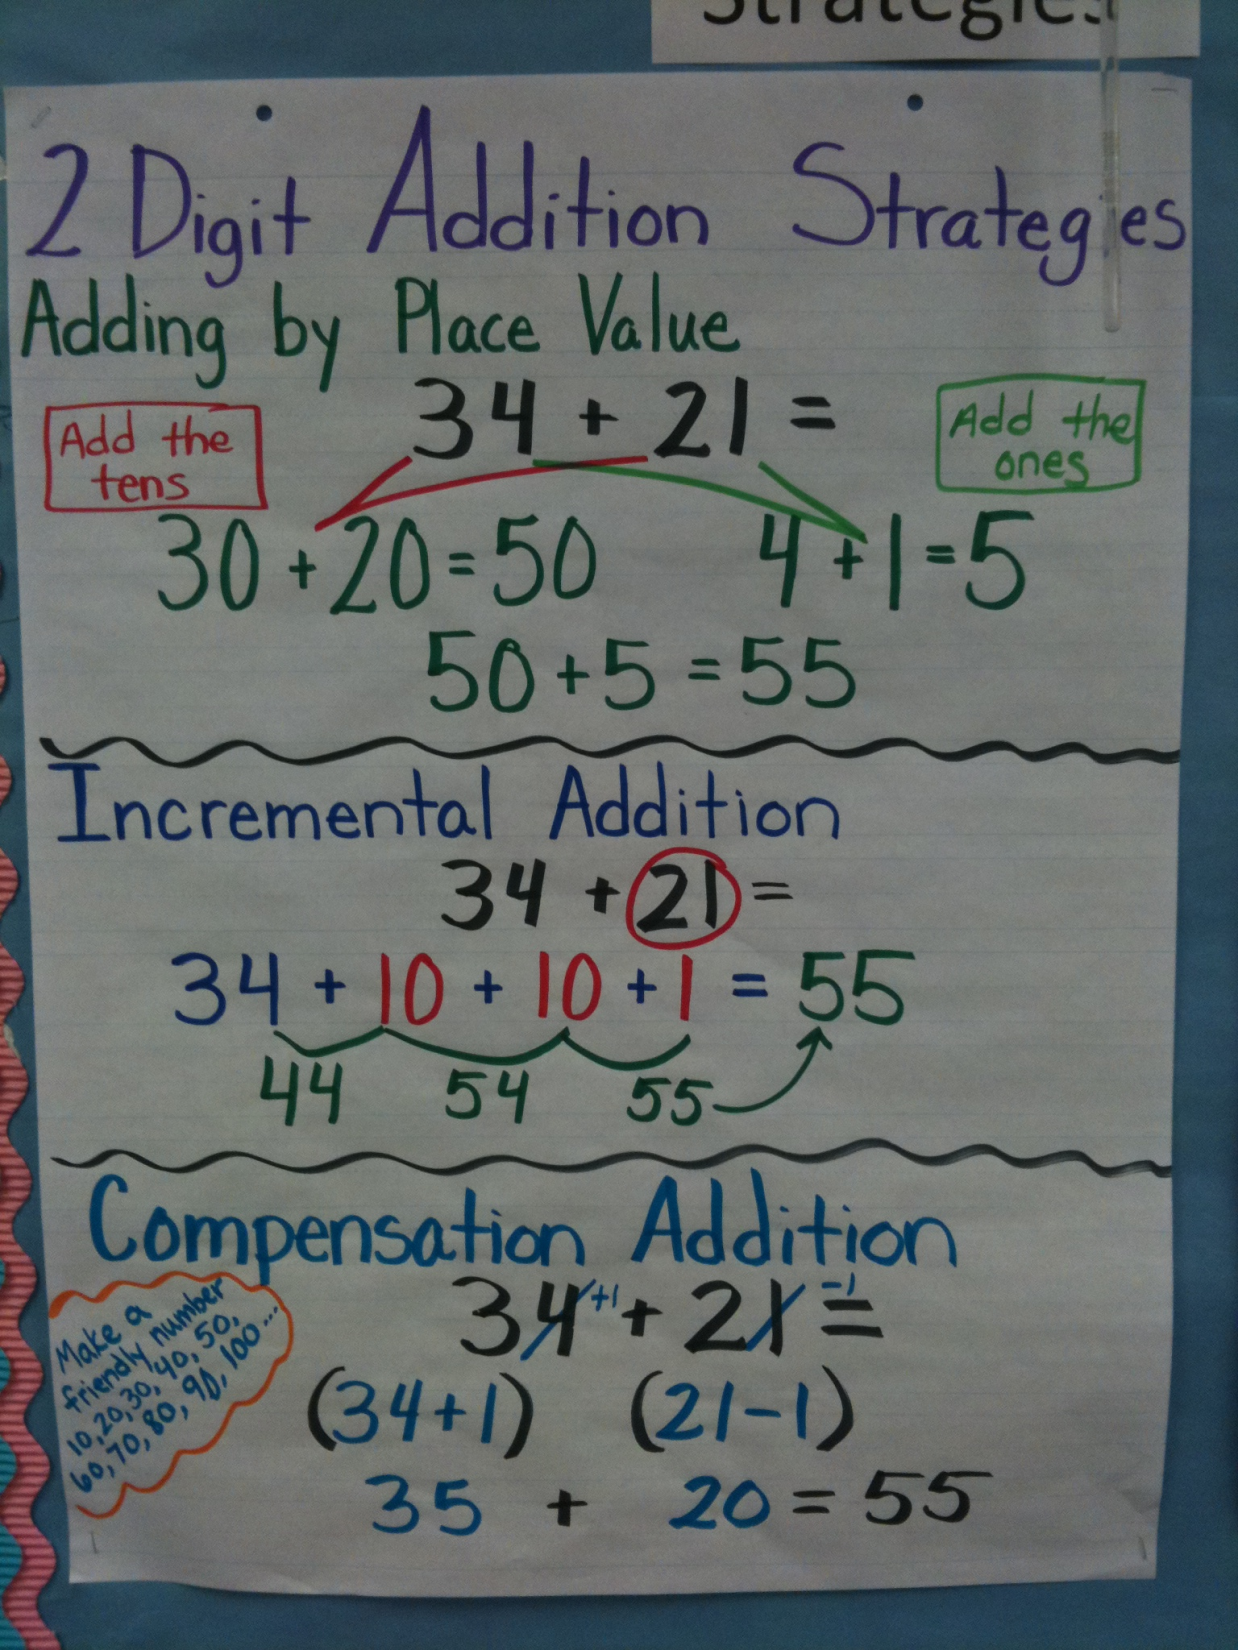 Strategies
2 Digit Addition Strategies
Adding by Place Value
34 + 21 =
Add the
tens
Add the
ones
30 + 20 = 50
4 + 1 = 5
50 + 5 = 55
Incremental Addition
34 + 21 =
34 + 10 + 10 + 1 = 55
44 54 55
Compensation Addition
34 +1 + 21 -1 =
Make a
friendly number
10, 20, 30, 40, 50,
60, 70, 80, 90, 100...
(34+1) (21-1)
35 + 20 = 55